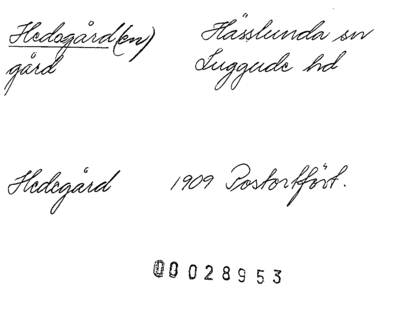 Hedegård(en) Hässlunda sn
gård Luggude hd
Hedegård 1909 Postortfört.
00028953